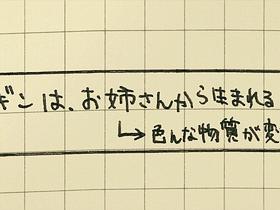 ギンは、お姉さんから生まれる
↳色んな物質が変